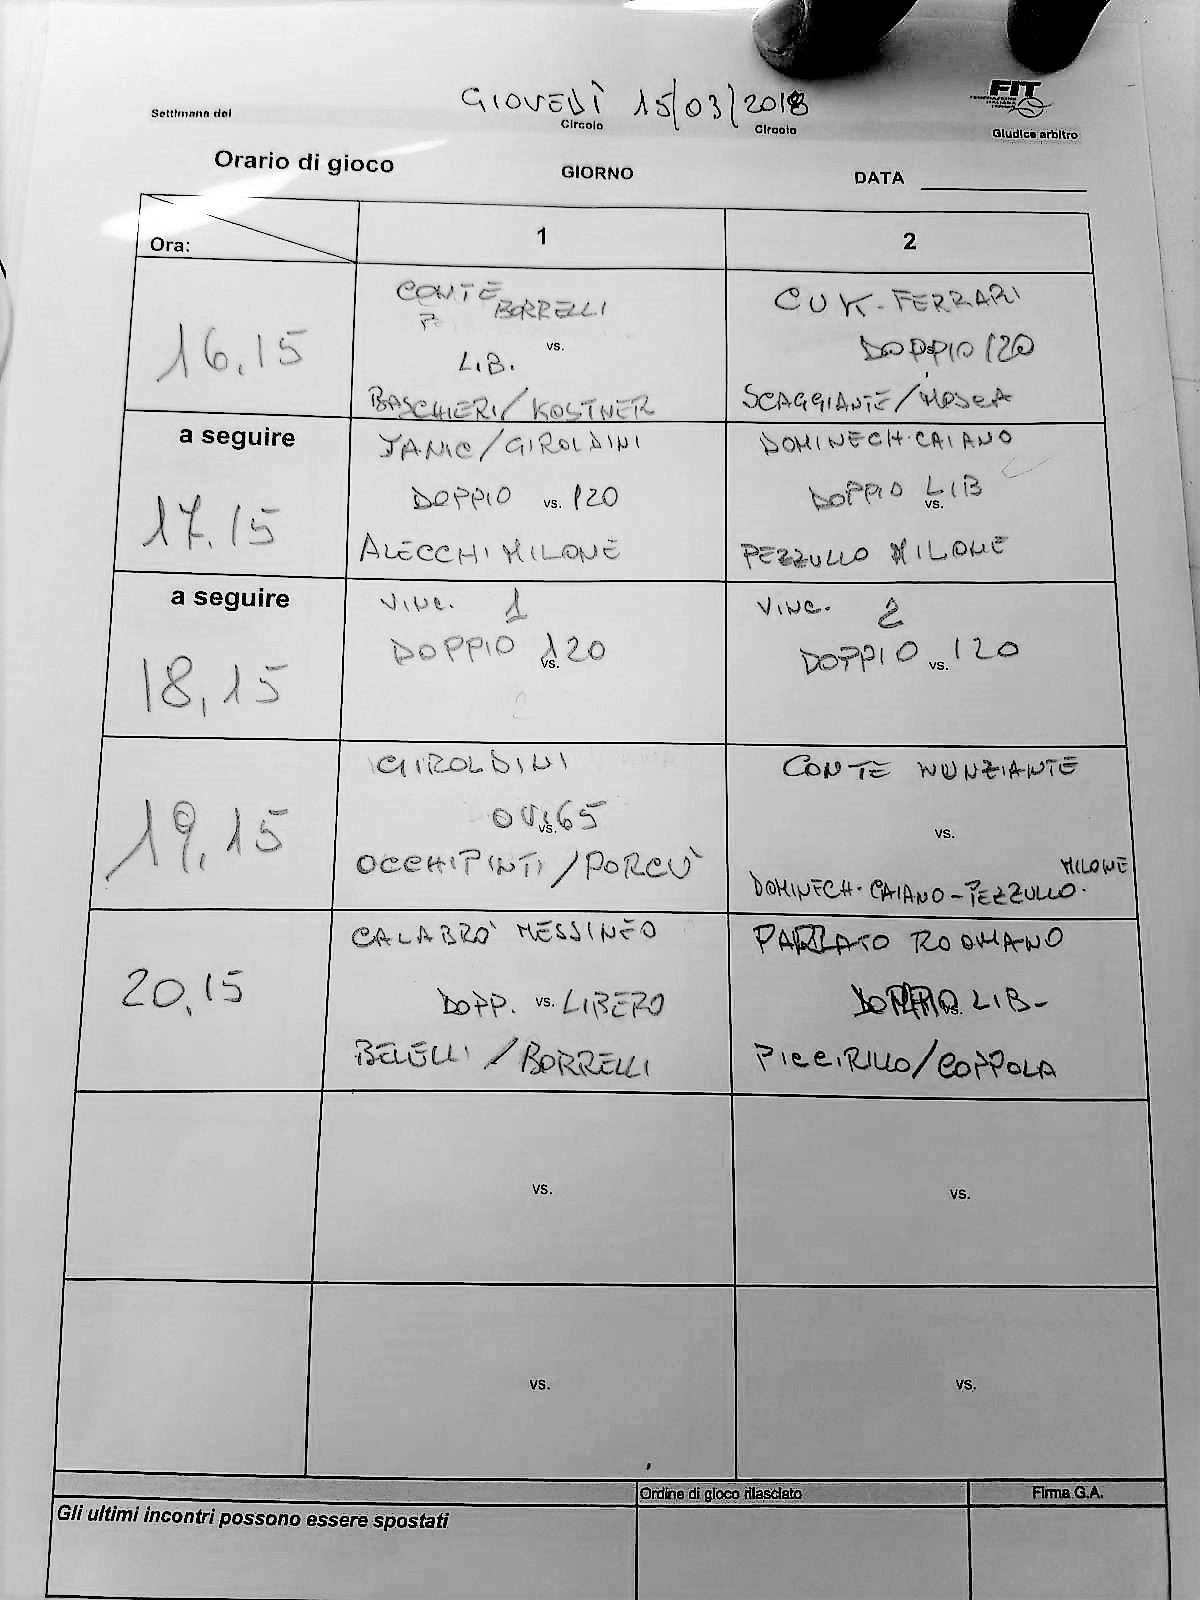 GIOVEDÌ 15/03/2018
Settimana del
Circolo
Circolo
FIT
FEDERAZIONE ITALIANA TENNIS
Giudice arbitro
Orario di gioco
GIORNO
DATA
Ora:
1
2
16,15
CONTE BORRELLI
vs.
LIB.
BASCHIERI/KOSTNER
CUK-FERRARI
DOPPIO 120
SCAGGIANTE/MOSCA
a seguire
17,15
JANIC/GIROLDINI
DOPPIO vs. 120
ALECCHI MILONE
DOMINECH-CAIANO
DOPPIO LIB
vs.
PEZZULLO MILONE
a seguire
18,15
VINC. 1
DOPPIO 120
vs.
VINC. 2
DOPPIO vs. 120
19,15
GIROLDINI
OV. 65
vs.
OCCHIPINTI/PORCÙ
CONTE NUNZIANTE
vs.
MILONE
DOMINECH-CAIANO-PEZZULLO.
20,15
CALABRO' MESSINEO
DOPP. vs. LIBERO
BELELLI/BORRELLI
PARLATO ROOMANO
DOPPIO LIB-
vs.
PICCIRILLO/COPPOLA
vs.
vs.
vs.
vs.
Ordine di gioco rilasciato
Firma G.A.
Gli ultimi incontri possono essere spostati